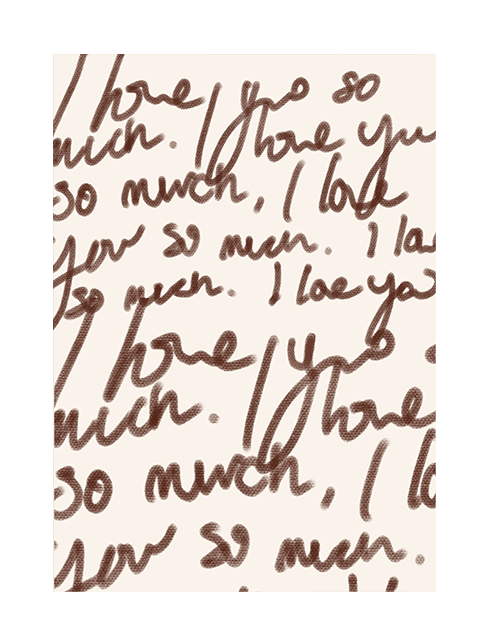 I love you so
much. I love you
so much, I love
you so much. I lo
so much. I love you
I love you s
much. I love
so much, I lo
you so much.